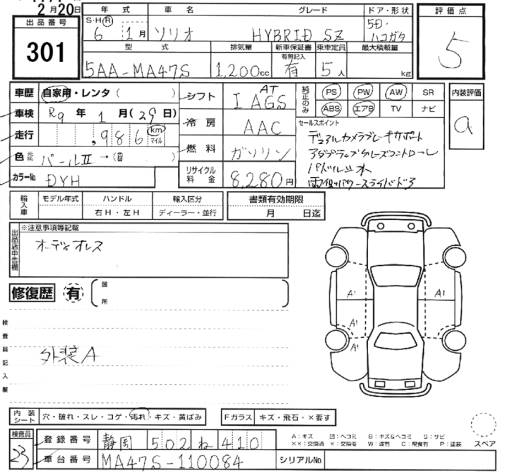 2月20日
出品番号
301
年式 車名 グレード ドア・形状
S・H・R 6 1月 ソリオ HYBRID SZ 5D. ハコガタ
型式 排気量 新車保証書 有無記入 乗車定員 最大積載量
5AA-MA47S 1,200cc 有 5人 kg
評価点
5
車歴 自家用・レンタ( )
車検 R9年1月(29)日
走行 ,986 km マイル
色 パールⅡ→(
カラーNo ZYH
シフト AT IAGS
冷房 AAC
燃料 ガソリン
リサイクル料金 8,280円
純正のみ PS PW AW SR
ABS エアB TV ナビ
セールスポイント
デュアルカメラブレーキサポート
アダプティブクルーズコントロール
パドルシフト
電動パワースライドドア
内装評価
a
輸入車 モデル年式 ハンドル 輸入区分
右H・左H ディーラー・並行
書類有効期限
月 日迄
※注意事項等記載
出品店申告欄
オーディオレス
修復歴 有 箇所
検査員記入欄
外装A
A1 A1
内装シート 穴・破れ・スレ・コゲ・汚れ・キズ・黄ばみ
Fガラス キズ・飛石・×要す
検査員
23
登録番号 静岡 502 ね 410
車台番号 MA47S-110084
シリアルNo
A:キズ U:ヘコミ B:キズ&ヘコミ S:サビ
スペア